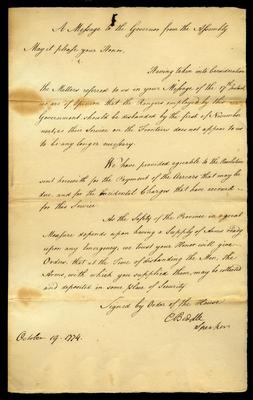 A Message to the Governor from the Assembly
May it please your Honor,
Having taken into Consideration
the Matters referred to us in your Message of the 17th Instant
we are of Opinion that the Rangers employed by this
Government should be disbanded by the first of November
next, as their Service on the Frontiers does not appear to us
to be any longer necessary.
We have provided agreeable to the Resolution
sent herewith for the Payment of the Arrears that may be
due, and for the Incidental Charges that have accrued
for this Service
As the Safety of the Province in a great
Measure depends upon having a Supply of Arms ready
upon any Emergency, we trust your Honor will give
Orders, that at the Time of disbanding the Men, the
Arms, with which you supplied them, may be collected
and deposited in some place of Security
Signed by Order of the House
E Biddle
Speaker
October 19. 1774.